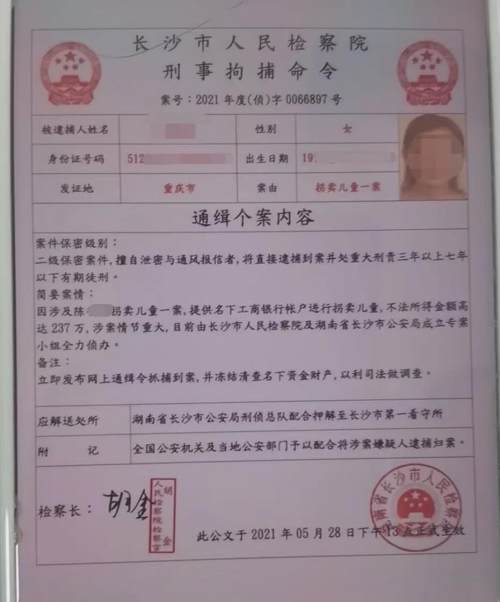 长沙市人民检察院
刑事拘捕命令
案号:2021年度(侦)字0066897号
被逮捕人姓名 性别 女
身份证号码 512 出生日期 19
发证地 重庆市 案由 拐卖儿童一案
通缉个案内容
案件保密级别:
二级保密案件,擅自泄密与通风报信者,将直接逮捕到案并处重大刑责三年以上七年
以下有期徒刑。
简要案情:
因涉及陈 拐卖儿童一案,提供名下工商银行帐户进行拐卖儿童,不法所得金额高
达237万,涉案情节重大,目前由长沙市人民检察院及湖南省长沙市公安局成立专案
小组全力侦办。
备注:
立即发布网上通缉令抓捕到案,并冻结清查名下资金财产,以利司法做调查。
应解送处所 湖南省长沙市公安局刑侦总队配合押解至长沙市第一看守所
附记 全国公安机关及当地公安部门予以配合将涉案嫌疑人逮捕归案。
检察长: 胡金
人民检察院检察官
胡金
湖南省长沙市人民检察院
此公文于2021年05月28日下午13点正式生效